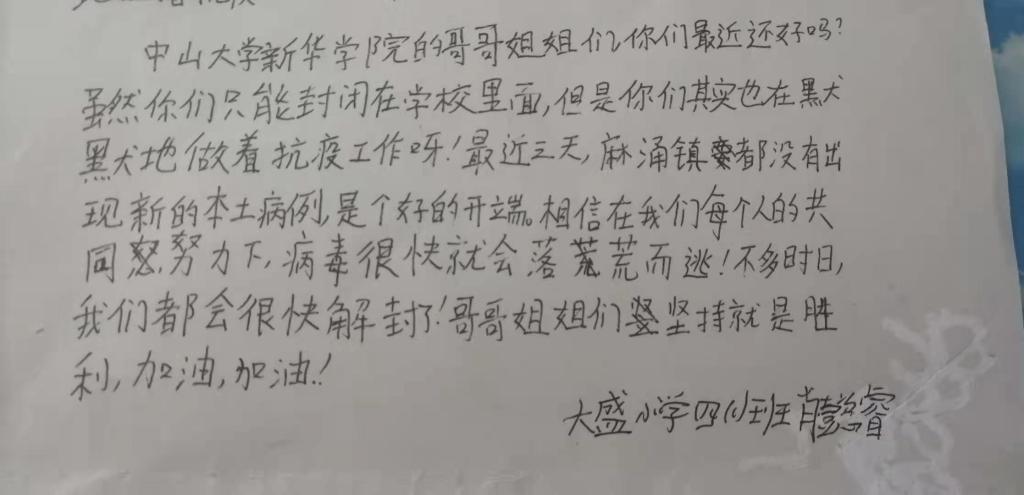 中山大学新华学院的哥哥姐姐们,你们最近还好吗?
虽然你们只能封闭在学校里面,但是你们其实也在默
默地做着抗疫工作呀!最近三天,麻涌镇都没有出
现新的本土病例,是个好的开端。相信在我们每个人的共
同努力下,病毒很快就会落荒而逃!不多时日,
我们都会很快解封了!哥哥姐姐们坚持就是胜
利,加油,加油!
大盛小学四(1)班 肖懿睿